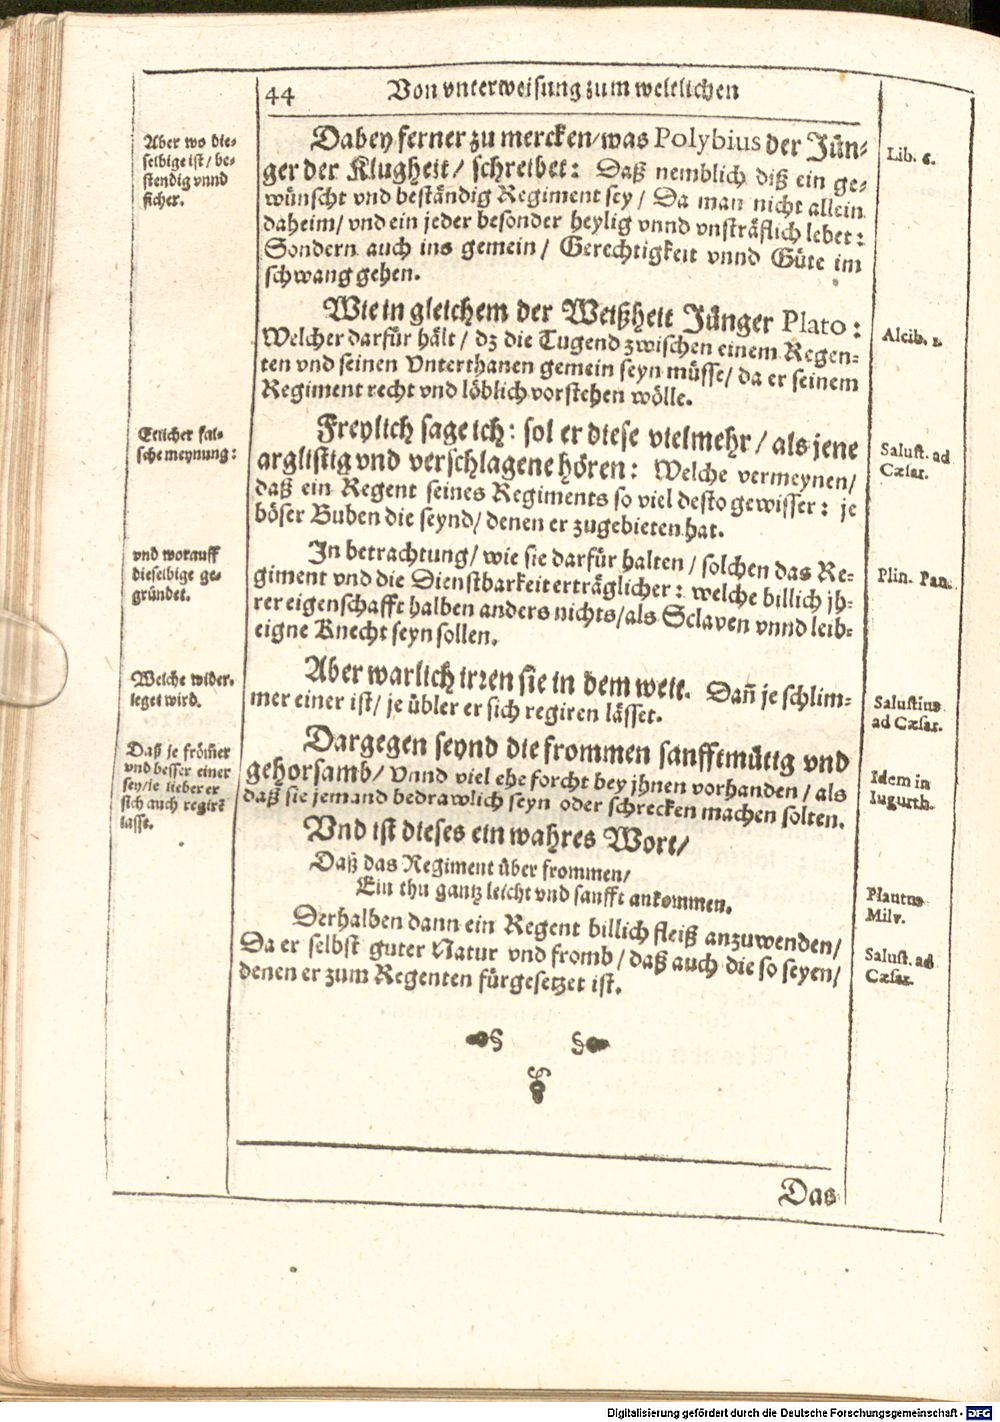 44
Von vnterweisung zum weltlichen
Aber wo die-
selbige ist / be-
stendig vnnd
sicher.
Dabey ferner zu mercken/was Polybius der Jün-
ger der Klugheit/ schreibet: Daß nemblich diß ein ge-
wünscht vnd beständig Regiment sey / Da man nicht allein
daheim/ vnd ein jeder besonder heylig vnnd vnsträflich lebet:
Sondern auch ins gemein / Gerechtigkeit vnnd Güte im
schwang gehen.
Lib. 6.
Wie in gleichem der Weißheit Jünger Plato:
Welcher darfür hält / dz die Tugend zwischen einem Regen-
ten vnd seinen Vnterthanen gemein seyn müsse/ da er seinem
Regiment recht vnd löblich vorstehen wölle.
Alcib. 1.
Etlicher fal-
sche meynung:
Freylich sage ich: sol er diese vielmehr / als jene
arglistig vnd verschlagene hören: Welche vermeynen/
daß ein Regent seines Regiments so viel desto gewisser: je
böser Buben die seynd/ denen er zugebieten hat.
Salust. ad
Cæsar.
vnd worauff
dieselbige ge-
gründet.
In betrachtung/ wie sie darfür halten / solchen das Re-
giment vnd die Dienstbarkeit erträglicher: welche billich jh-
rer eigenschafft halben anders nichts/als Sclaven vnnd leib-
eigne Knecht seyn sollen.
Plin. Pan.
Welche wider-
leget wird.
Aber warlich irren sie in dem weit. Dañ je schlim-
mer einer ist/ je übler er sich regiren lässet.
Salustius
ad Cæsar.
Daß je frömer
vnd besser einer
sey/je lieber er
sich auch regirẽ
lasse.
Dargegen seynd die frommen sanfftmütig vnd
gehorsamb/ Vnnd viel ehe forcht bey jhnen vorhanden / als
daß sie jemand bedrawlich seyn oder schrecken machen solten.
Idem in
Iugurth.
Vnd ist dieses ein wahres Wort/
Daß das Regiment über frommen/
Ein thu gantz leicht vnd sanfft ankommen.
Plautus
Milv.
Derhalben dann ein Regent billich fleiß anzuwenden/
Da er selbst guter Natur vnd fromb / daß auch die so seyen/
denen er zum Regenten fürgesetzet ist.
Salust. ad
Cæsar.
Das
Digitalisierung gefördert durch die Deutsche Forschungsgemeinschaft - DFG